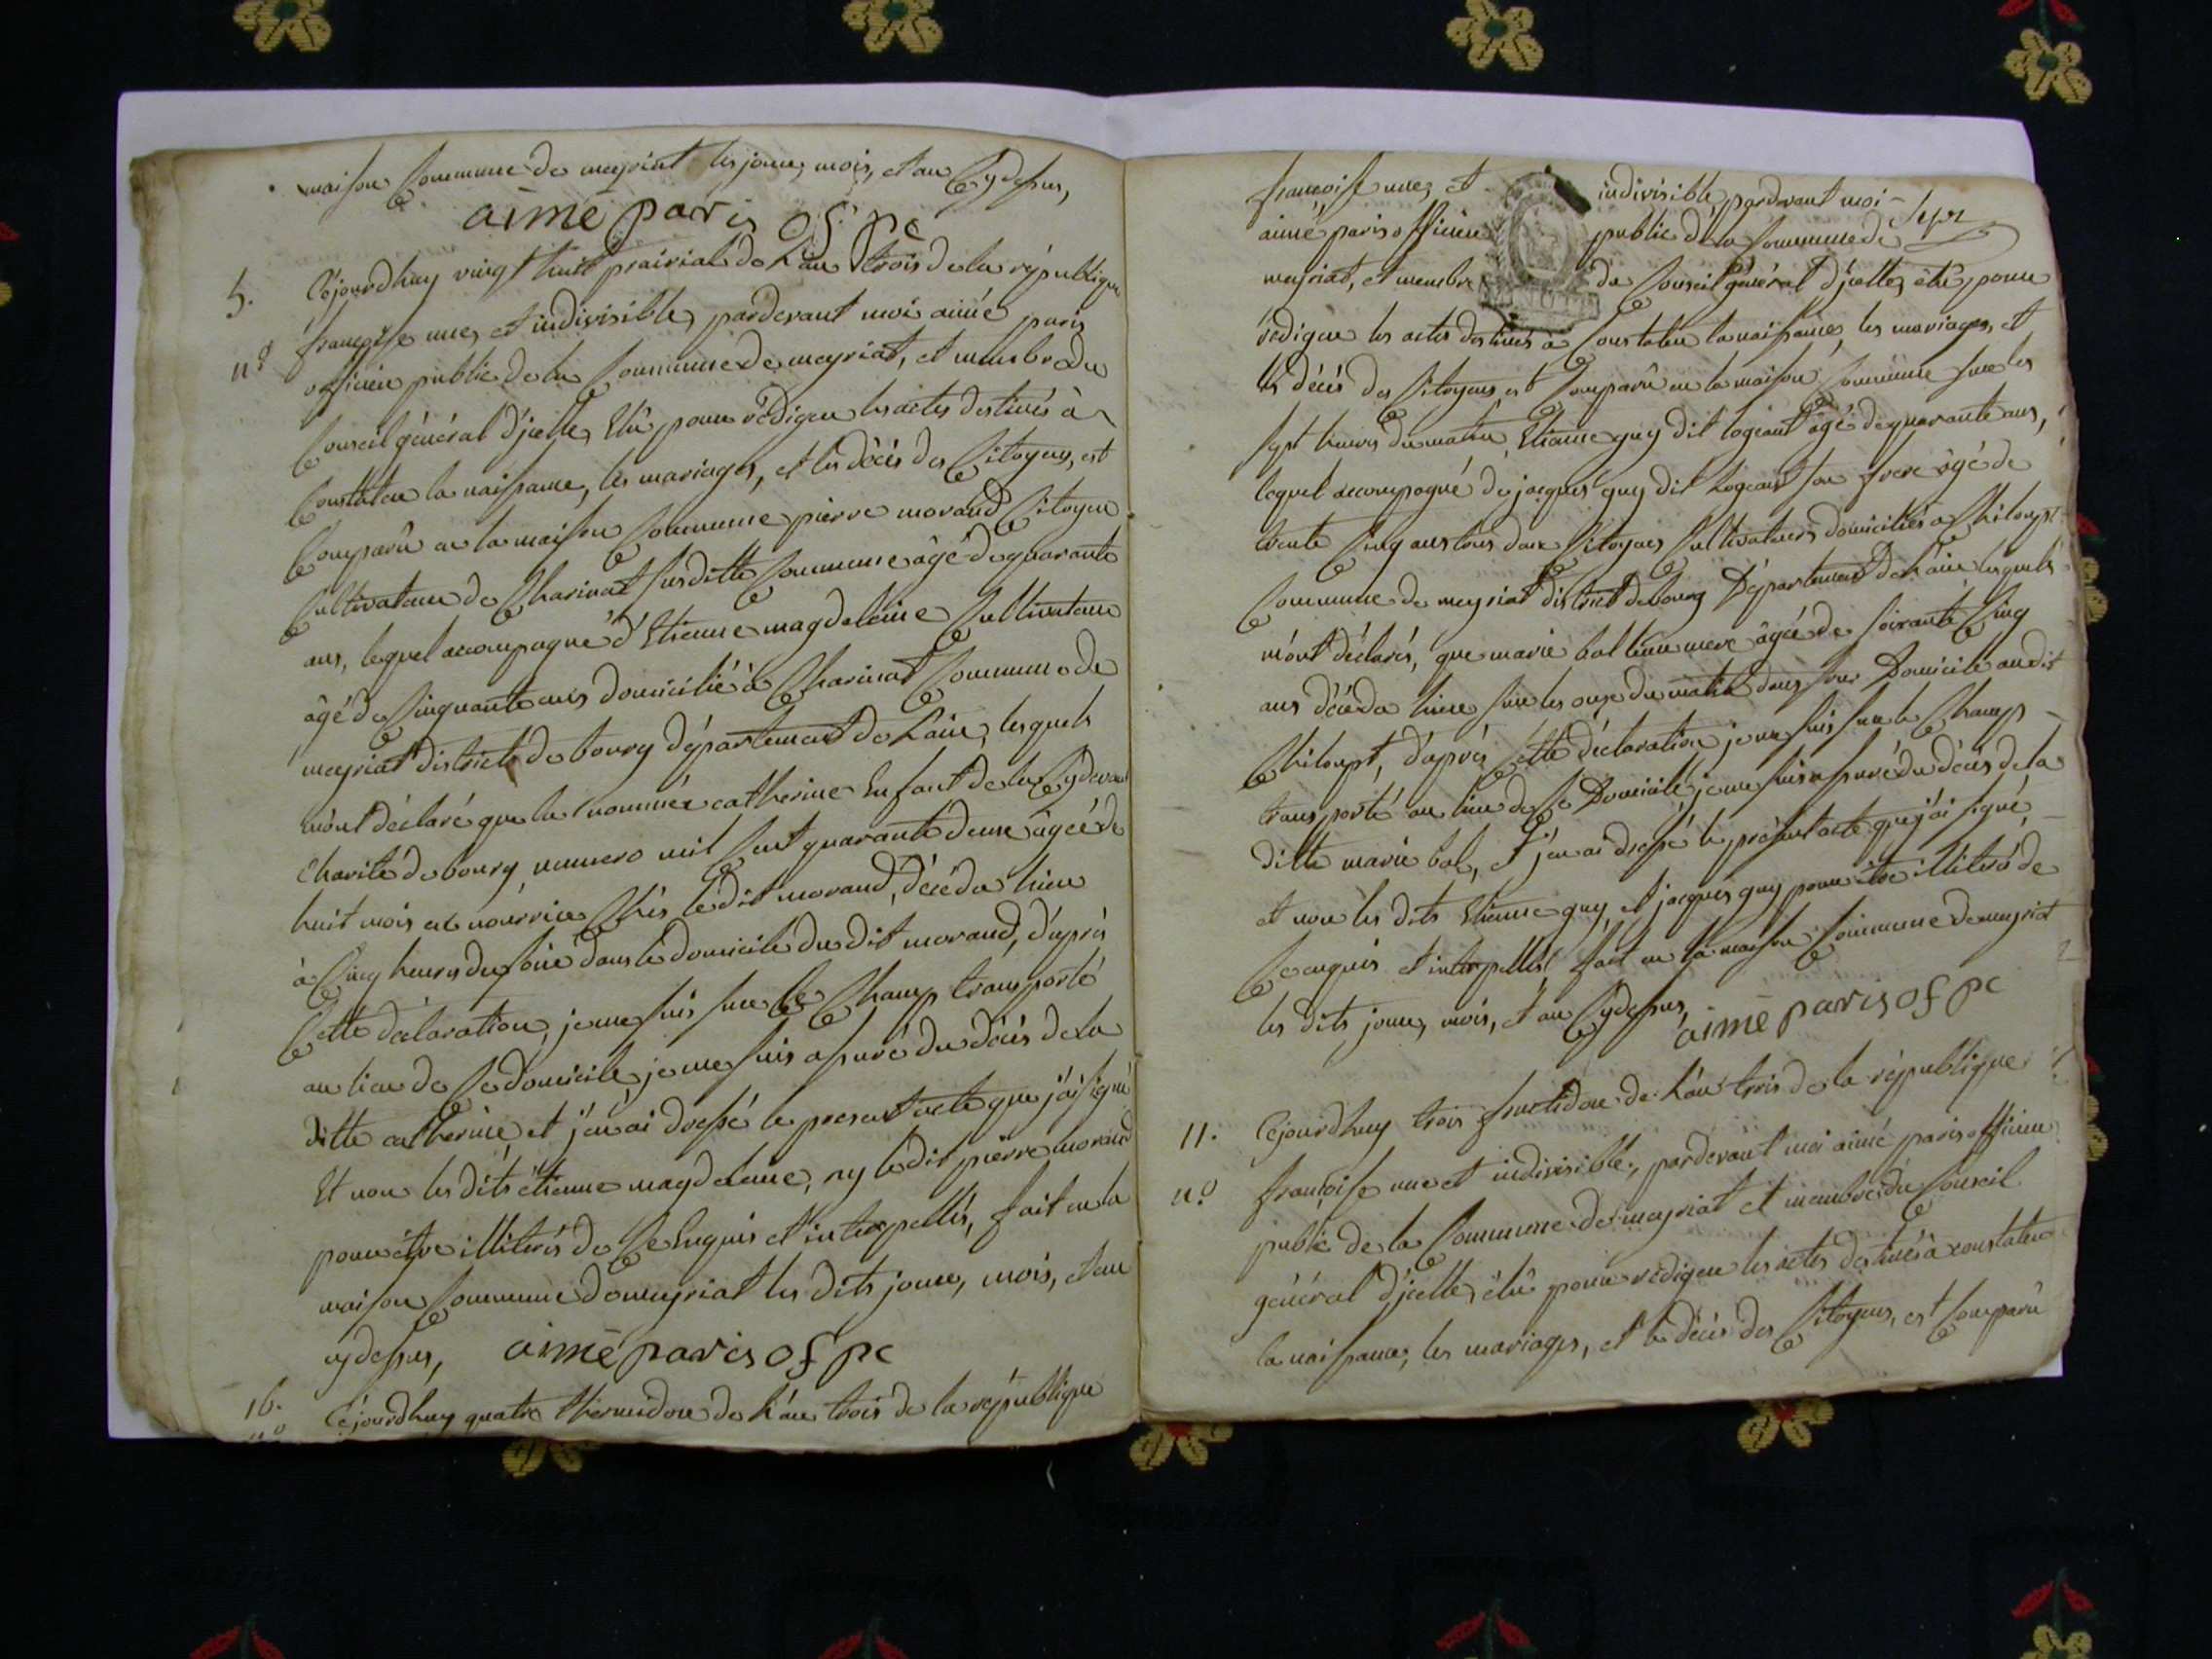 maison Commune de meyriat les jour, mois, et an Cydessus,
aimé paris of. pc
5. Cejourdhuy vingt huit prairial de L'an trois de la république
n.o françoise une, et indivisible, pardevant moi aimé paris
officier public de la Commune de meyriat, et membre du
Conseil général d'jcelle, Elû pour rédiger les actes destinés à
Constater la naissance, les mariages, et les décès des Citoyens, est
Comparû en la maison Commune pierre morand Citoyen
Cultivateur de Charinat susditte Commune âgé de quarante
ans, lequel accompagné d'Etienne magdeleine Cultivateur
âgé de Cinquante ans domicilié à Charinat Commune de
meyriat district de bourg département de L'ain, lesquels
m'ont déclaré que la nommée catherine Enfant de la Cydevant
charité de bourg, numero mil Cent quarante deux âgée de
huit mois en nourrice Chés le dit morand, décéda hier
à Cinq heures du soir dans le domicile du dit morand, d'après
Cette déclaration, je me suis sur le Champ transporté
au lieu de Ce domicile, je me suis assuré du décès de la
ditte catherine, et j'en ai dressé le present acte que j'ai signé
Et non les dits étienne magdeleine, ny le dit pierre morand
pour être illitérés de Ce Enquis et interpellés, fait en la
maison Commune de meyriat les dits jour, mois, et an
cydessus, aimé paris of pc
16. Cejourdhuy quatre thermidor de L'an trois de la république
n.o
françoise une, et indivisible, pardevant moi
aimé paris officier public de la Commune de
meyriat, et membre du Conseil général d'jcelle, élû pour
rédiger les actes destinés à Constater la naissance, les mariages, et
les décès des Citoyens, est Comparû en la maison Commune sur les
sept heures du matin, Etienne guy dit logeant âgé de quarante ans,
lequel accompagné de jacques guy dit Logeant son frere âgé de
trente Cinq ans tous deux Citoyens Cultivateurs domiciliés a Chiloupt
Commune de meyriat district de bourg Département de L'ain lesquels
m'ont déclarés, que marie bal leur mere âgée de soixante Cinq
ans décéda hier sur les onze du matin dans son Domicile audit
Chiloupt, d'après Cette déclaration je me suis sur le Champ
transporté au lieu de Ce Domicile, je me suis assuré du décès de la
ditte marie bal, et j'en ai dressé le présent acte que j'ai signé,
et non les dits Etienne guy, et jacques guy pour être illitéré de
Ce enquis et interpellés, fait en la maison Commune de meyriat
les dits jour, mois, et an Cydessus,
aimé paris of pc
11. Cejourdhuy trois fructidor de L'an trois de la république
n.o françoise une et indivisible, pardevant moi aimé paris officier
public de la Commune de meyriat et membre du Conseil
général d'jcelle, élû pour rédiger les actes destinés à constater
la naissance, les mariages, et le décès des Citoyens, est Comparû